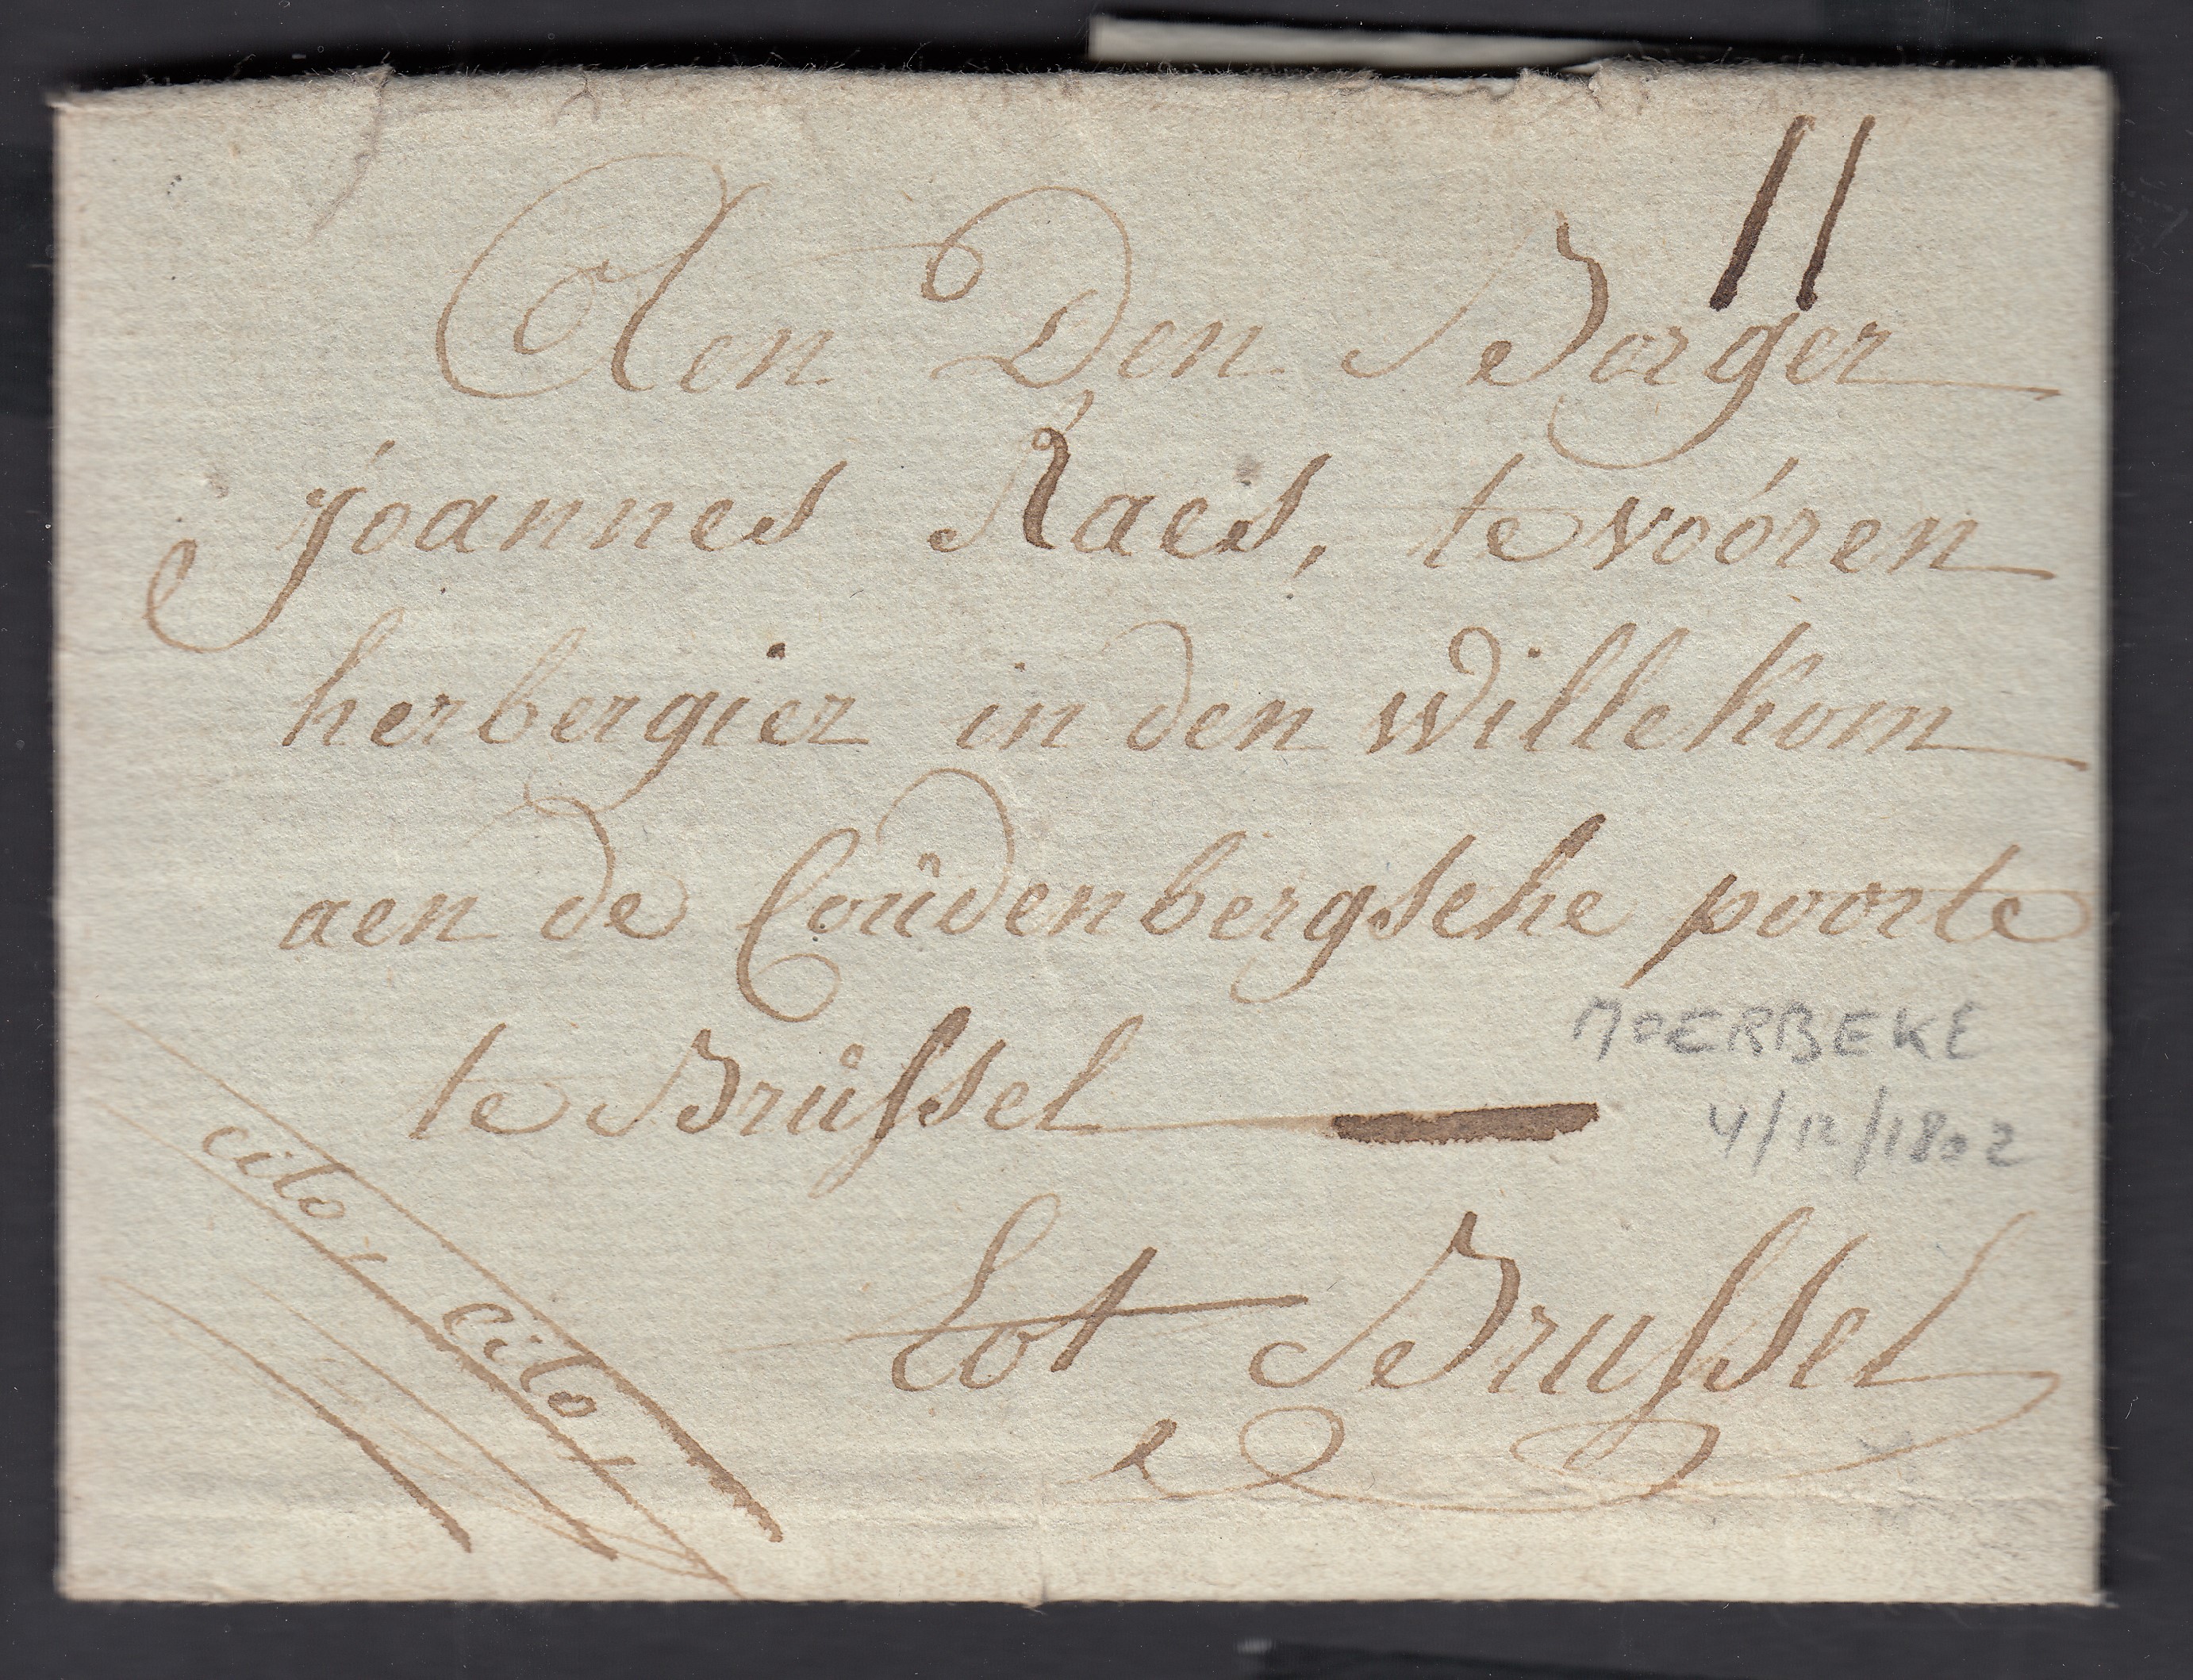 11
Aen Den Borger
joannes Raes, te vóóren
herbergier in den willekom
aen de Coûdenbergsche poorte
te Brůssel
MOERBEKE
4/12/1802
cito, cito,
tot Brussel